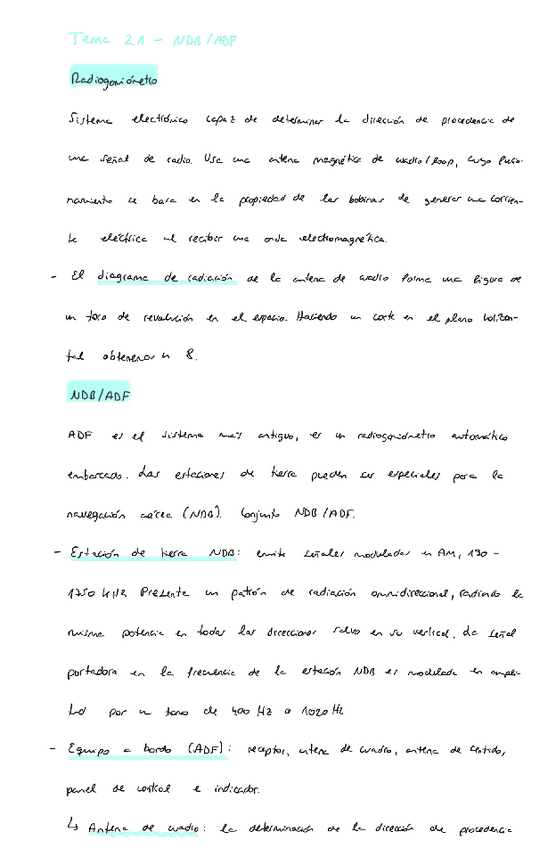 Tema 2.1 - NDB/ADF
Radiogoniómetro
Sistema electrónico capaz de determinar la dirección de procedencia de
una señal de radio. Usa una antena magnética de cuadro/loop, cuyo funcio-
namiento se basa en la propiedad de las bobinas de generar una corrien-
te eléctrica al recibir una onda electromagnética.
- El diagrama de radiación de la antena de cuadro forma una figura de
un toro de revolución en el espacio. Haciendo un corte en el plano horizon-
tal obtenemos un 8.
NDB/ADF
ADF es el sistema más antiguo, es un radiogoniómetro automático
embarcado. Las estaciones de tierra pueden ser especiales para la
navegación aérea (NDB). Conjunto NDB/ADF.
- Estación de tierra NDB: emite señales moduladas en AM, 190 -
1750 kHz. Presenta un patrón de radiación omnidireccional, radiando la
misma potencia en todas las direcciones salvo en su vertical. La señal
portadora en la frecuencia de la estación NDB es modulada en ampli-
tud por un tono de 400 Hz o 1020 Hz
- Equipo a bordo (ADF): receptor, antena de cuadro, antena de sentido,
panel de control e indicador.
↳ Antena de cuadro: la determinación de la dirección de procedencia